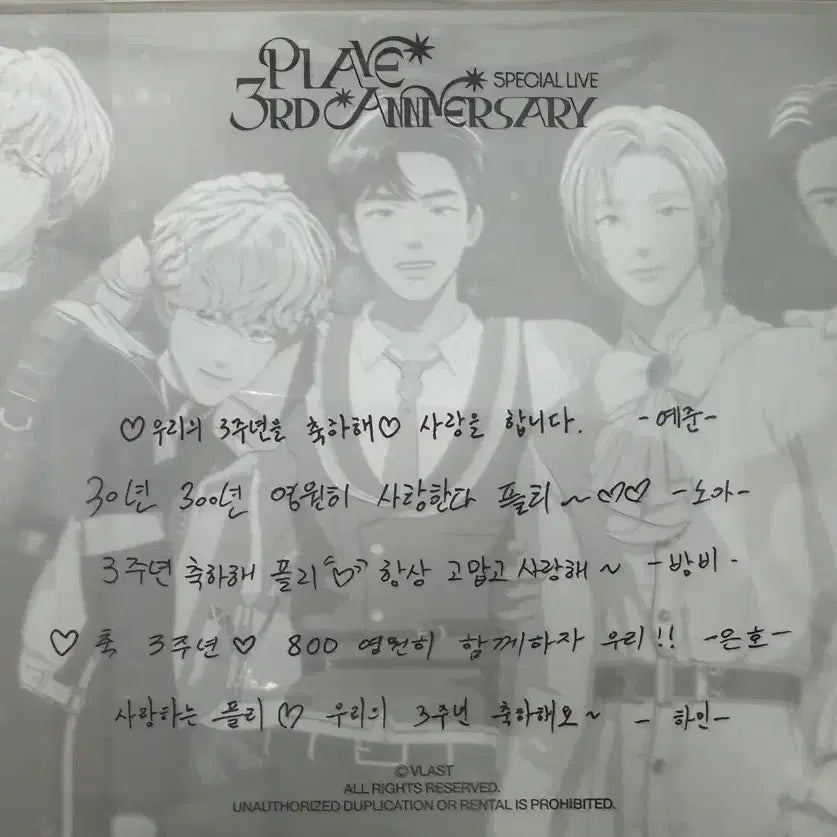 PLAVE
3RD ANNIVERSARY SPECIAL LIVE
♡우리의 3주년을 축하해♡ 사랑을 합니다. -예준-
30년 300년 영원히 사랑한다 플리~♡♡ -노아-
3주년 축하해 플리♡ 항상 고맙고 사랑해~ -밤비-
♡ 축 3주년 ♡ 800 영원히 함께하자 우리!! -은호-
사랑하는 플리♡ 우리의 3주년 축하해요~ - 하민-
©VLAST
ALL RIGHTS RESERVED.
UNAUTHORIZED DUPLICATION OR RENTAL IS PROHIBITED.